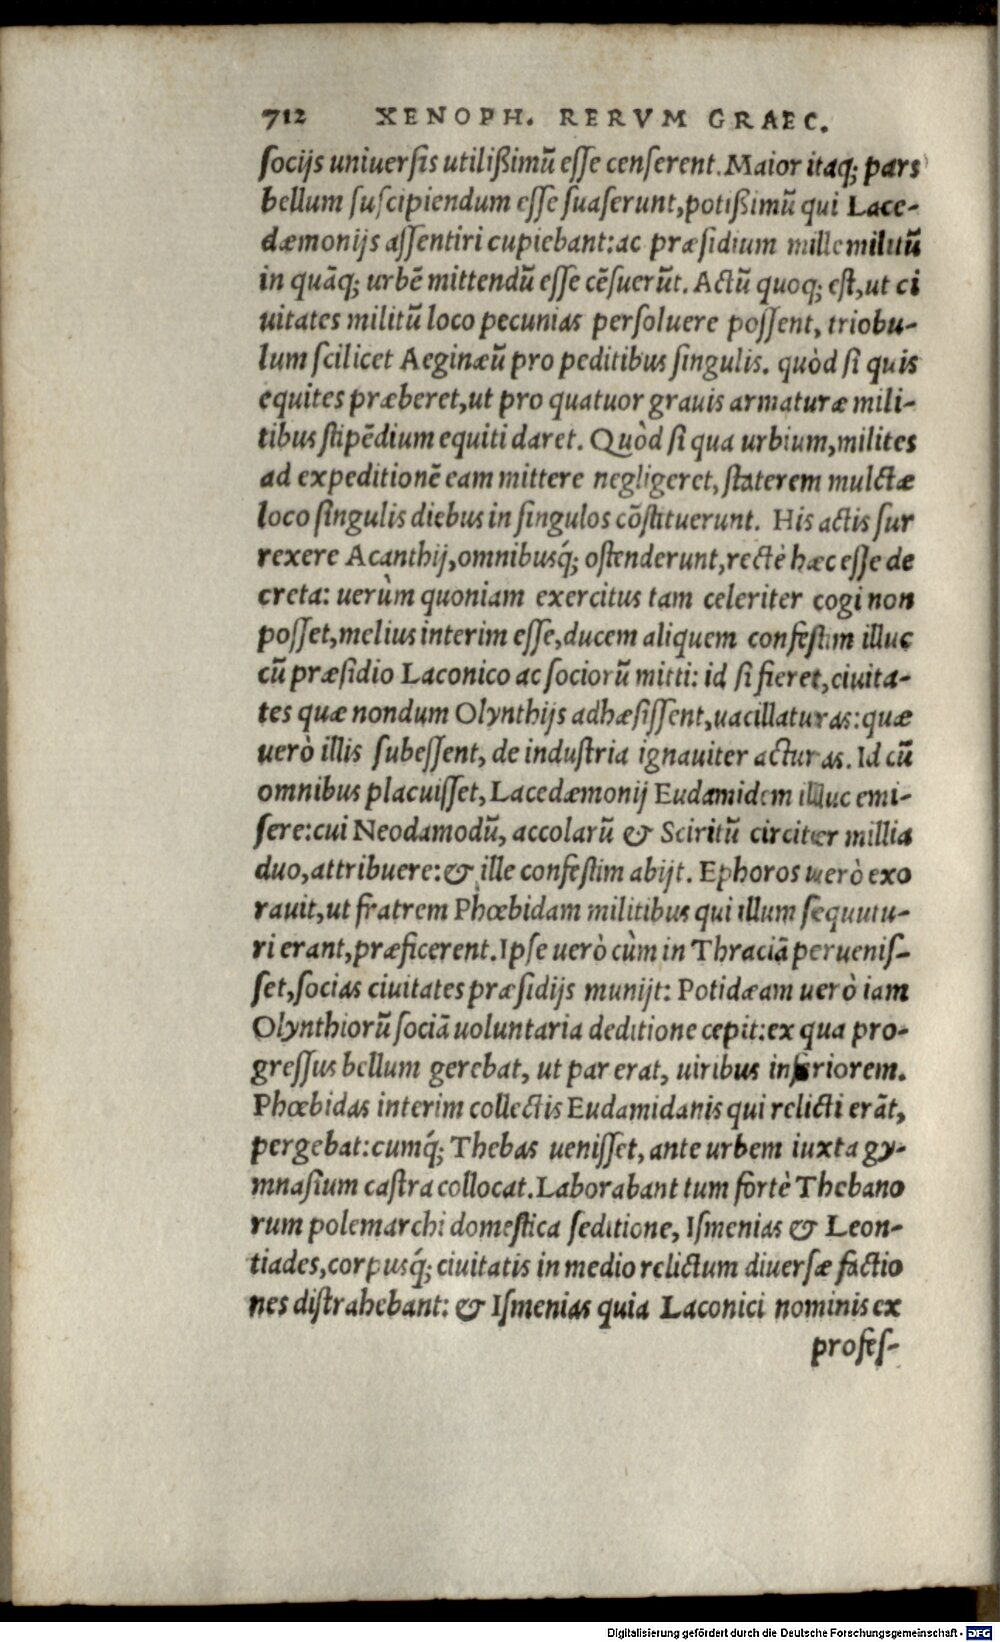 712 XENOPH. RERVM GRAEC.
socijs uniuersis utilißimũ esse censerent. Maior itaq; pars
bellum suscipiendum esse suaserunt, potißimũ qui Lace-
dæmonijs assentiri cupiebant: ac præsidium mille militũ
in quãq; urbẽ mittendũ esse cẽsuerũt. Actũ quoq; est, ut ci
uitates militũ loco pecunias persoluere possent, triobu-
lum scilicet Aeginæũ pro peditibus singulis. quòd si quis
equites præberet, ut pro quatuor grauis armaturæ mili-
tibus stipẽdium equiti daret. Quòd si qua urbium, milites
ad expeditionẽ eam mittere negligeret, staterem mulctæ
loco singulis diebus in singulos cõstituerunt. His actis sur
rexere Acanthij, omnibusq́; ostenderunt, rectè hæc esse de
creta: uerùm quoniam exercitus tam celeriter cogi non
posset, melius interim esse, ducem aliquem confestim illuc
cũ præsidio Laconico ac sociorũ mitti: id si fieret, ciuita-
tes quæ nondum Olynthijs adhæsissent, uacillaturas: quæ
uerò illis subessent, de industria ignauiter acturas. Id cũ
omnibus placuisset, Lacedæmonij Eudamidem illuc emi-
sere: cui Neodamodũ, accolarũ & Sciritũ circiter millia
duo, attribuere: & ille confestim abijt. Ephoros uerò exo
rauit, ut fratrem Phœbidam militibus qui illum sequutu-
ri erant, præficerent. Ipse uerò cùm in Thraciã peruenis-
set, socias ciuitates præsidijs munijt: Potidæam uerò iam
Olynthiorũ sociã uoluntaria deditione cepit: ex qua pro-
gressus bellum gerebat, ut par erat, uiribus inferiorem.
Phœbidas interim collectis Eudamidanis qui relicti erãt,
pergebat: cumq́; Thebas uenisset, ante urbem iuxta gy-
mnasium castra collocat. Laborabant tum fortè Thebano
rum polemarchi domestica seditione, Ismenias & Leon-
tiades, corpusq́; ciuitatis in medio relictum diuersæ factio
nes distrahebant: & Ismenias quia Laconici nominis ex
profes-
Digitalisierung gefördert durch die Deutsche Forschungsgemeinschaft - DFG